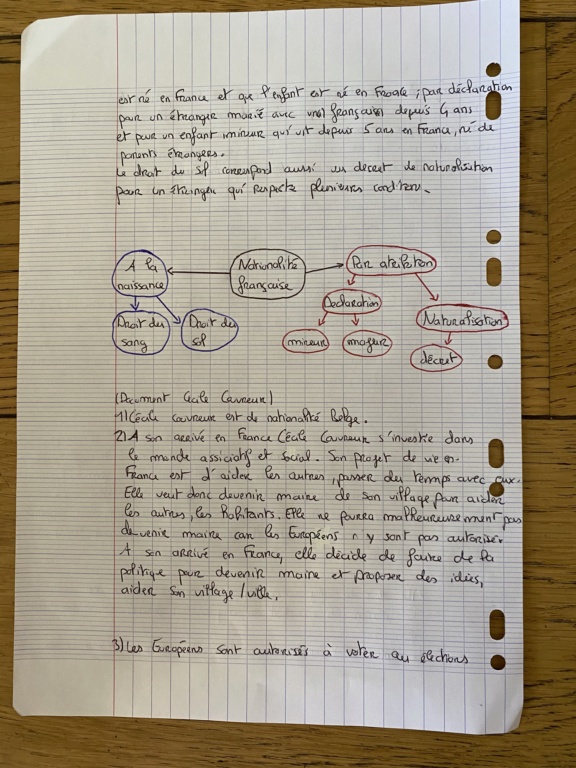 est né en France et que l'enfant est né en France ; par déclaration
pour un étranger marié avec un(e) français(e) depuis 4 ans
et pour un enfant mineur qui vit depuis 5 ans en France, né de
parents étrangers.
Le droit du sol correspond aussi un décret de naturalisation
pour un étranger qui respecte plusieurs conditions.
A la naissance
Nationalité française
Par attribution
Déclaration
Droit du sang
Droit du sol
Naturalisation
mineur
majeur
décret
(Document Cécile Couvreur)
1) Cécile Couvreur est de nationalité Belge.
2) A son arrivé en France Cécile Couvreur s'investie dans
le monde associatif et social. Son projet de vie en
France est d'aider les autres, passer du temps avec eux.
Elle veut donc devenir maire de son village pour aider
les autres, les habitants. Elle ne pourra malheureusement pas
devenir maire car les Européens n'y sont pas autorisés.
A son arrivé en France, elle décide de faire de la
politique pour devenir maire et proposer des idées,
aider son village/ville.
3) Les Européens sont autorisés à voter au élections